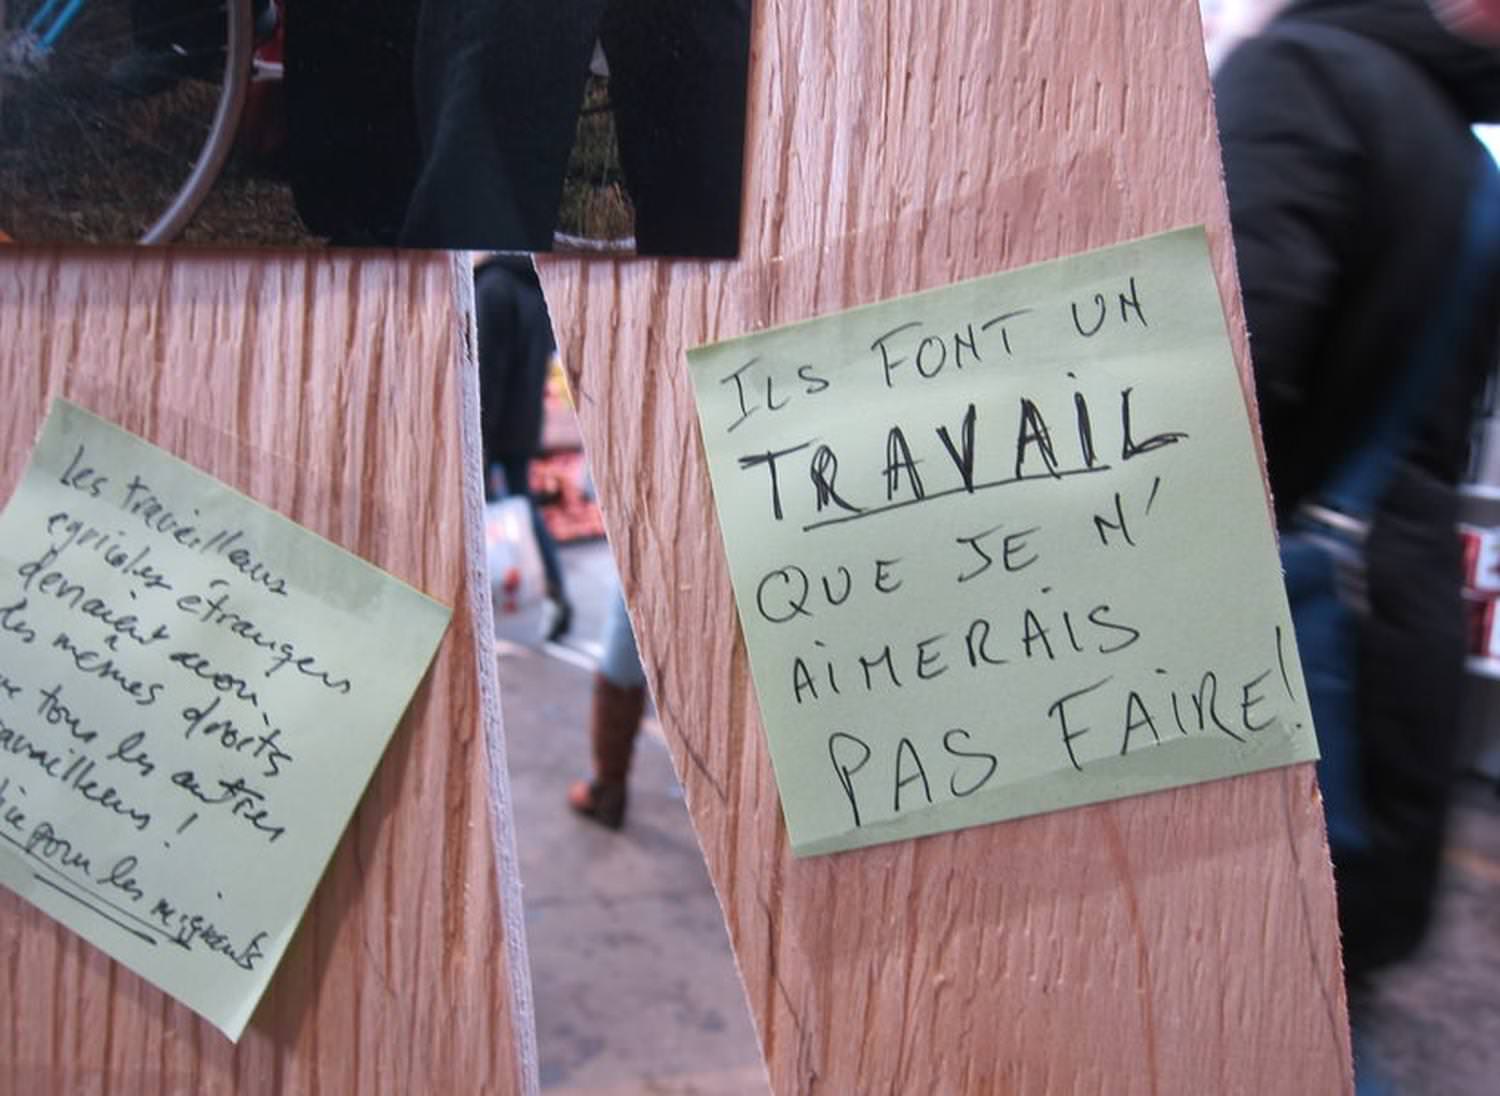 Les travailleurs
agricoles étrangers
devraient avoir
les mêmes droits
que tous les autres
travailleurs !
pour les migrants
ILS FONT UN
TRAVAIL
QUE JE N'
AIMERAIS
PAS FAIRE!